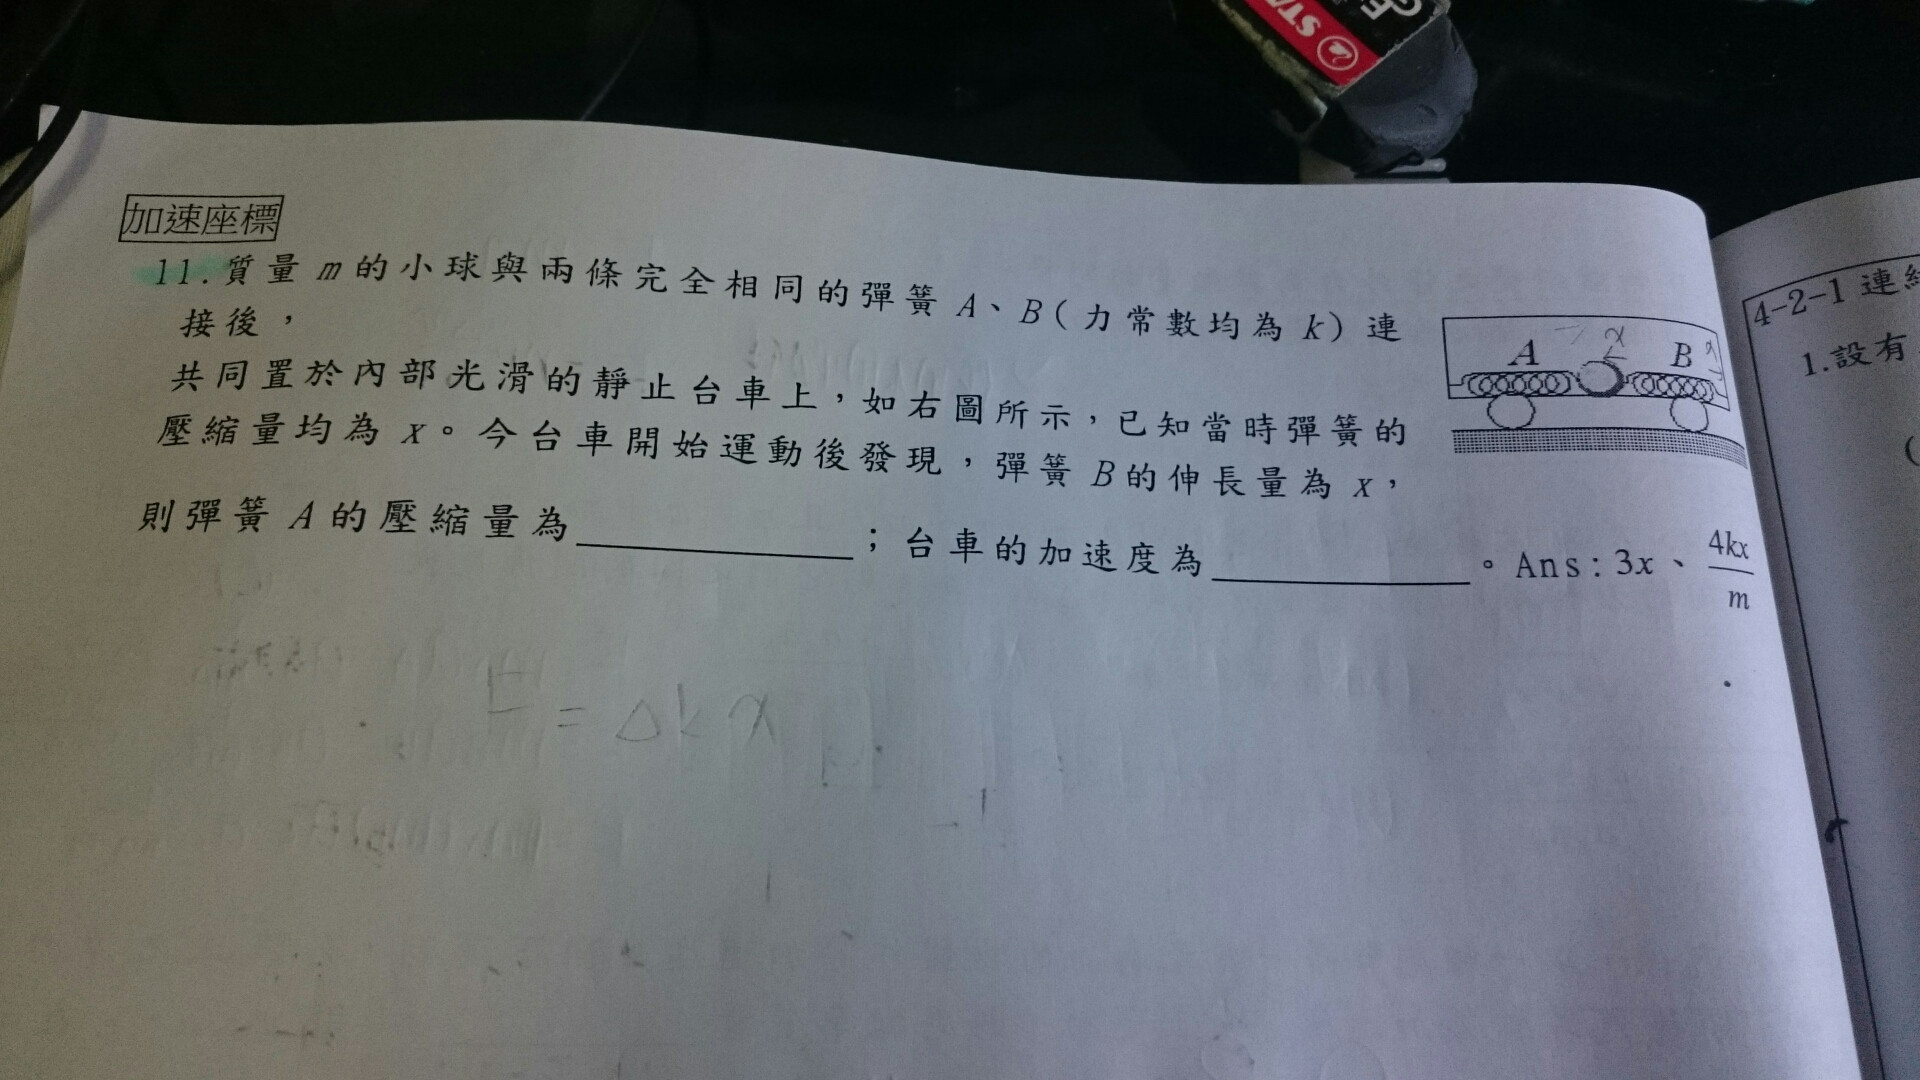 加速座標
11.質量 m 的小球與兩條完全相同的彈簧 A、B(力常數均為 k)連
接後，
共同置於內部光滑的靜止台車上，如右圖所示，已知當時彈簧的
壓縮量均為 x。今台車開始運動後發現，彈簧 B 的伸長量為 x，
則彈簧 A 的壓縮量為＿＿＿＿＿；台車的加速度為＿＿＿＿＿。Ans：3x、4kx/m
A x B x
F = Δkx
4-2-1 連
1.設有
(
STA